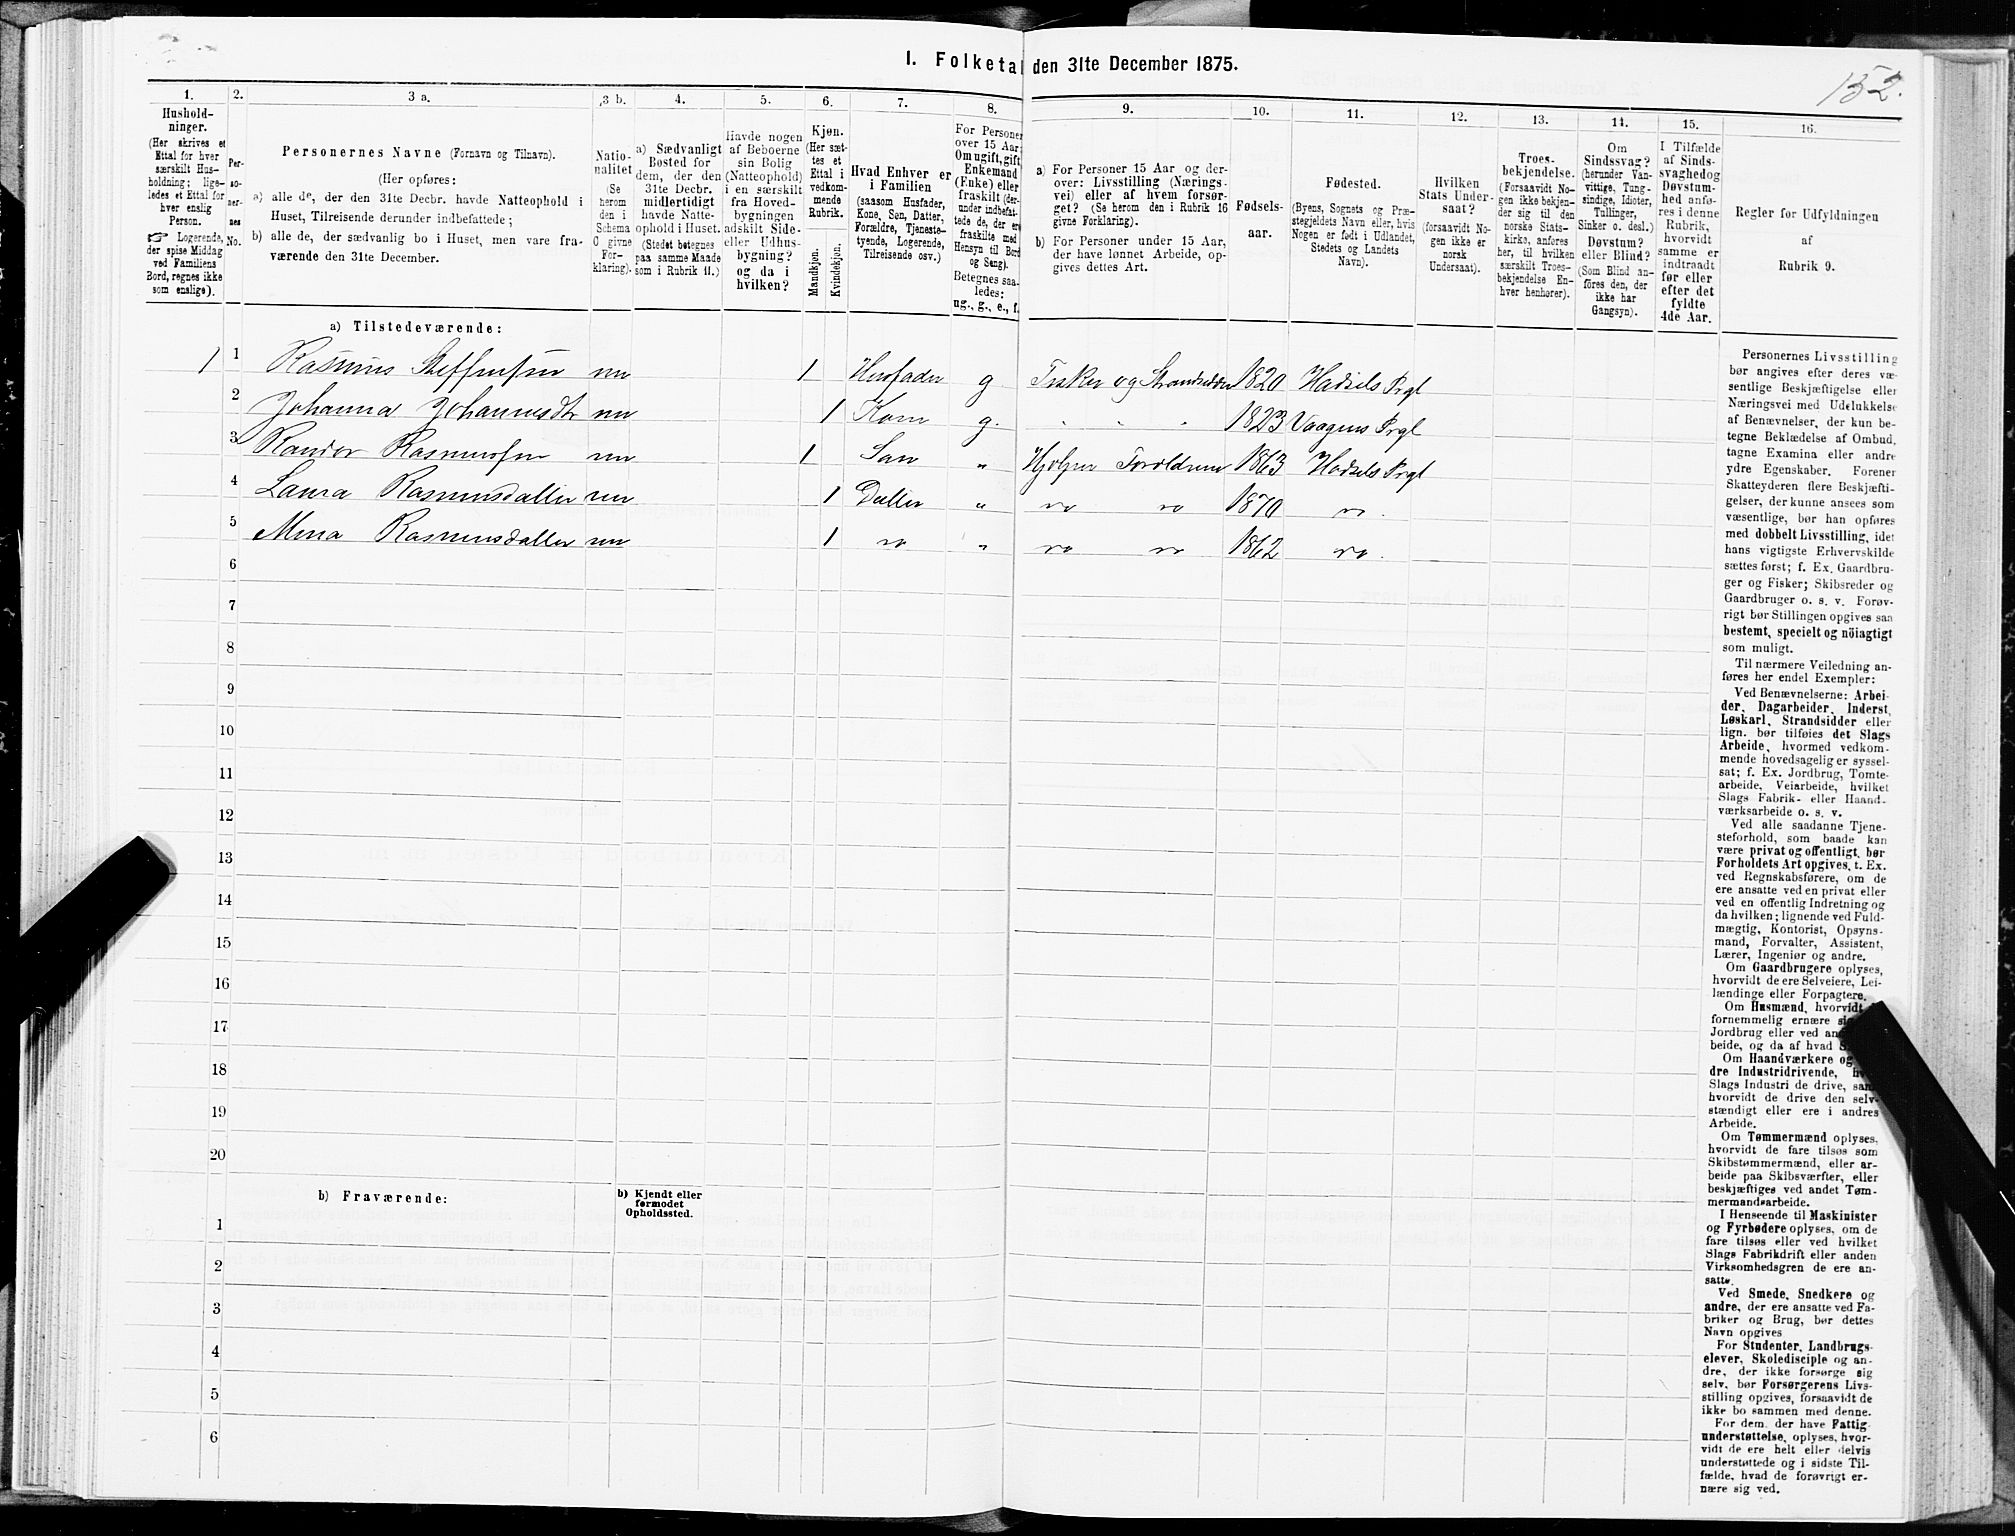 152.
I. Folketal den 31te December 1875.
1. 2. 3 a. 3 b. 4. 5. 6. 7. 8. 9. 10. 11. 12. 13. 14. 15. 16.
Hushold-
ninger.
(Her skrives et
Ettal for hver
særskilt Hus-
holdning; lige-
ledes et Ettal for
hver enslig
Person.
☞ Logerende,
der spise Middag
ved Familiens
Bord, regnes ikke
som enslige).
Per-
so-
ner-
nes
No.
Personernes Navne (Fornavn og Tilnavn).
(Her opføres:
a) alle de, der den 31te Decbr. havde Natteophold i
Huset, Tilreisende derunder indbefattede;
b) alle de, der sædvanlig bo i Huset, men vare fra-
værende den 31te December.
Natio-
nalitet
(Se
herom
den i
Schema
C givne
For-
klaring).
a) Sædvanligt
Bosted for
dem, der den
31te Decbr.
midlertidigt
havde Natte-
ophold i Huset.
(Stedet betegnes
paa samme Maade
som i Rubrik 11.)
Havde nogen
af Beboerne
sin Bolig
(Natteophold)
i en særskilt
fra Hoved-
bygningen
adskilt Side-
eller Udhus-
bygning?
og da i
hvilken?
Kjøn.
(Her sæt-
tes et
Ettal i
vedkom-
mende
Rubrik.
Mandkjøn.
Kvindekjøn.
Hvad Enhver er
i Familien
(saasom Husfader,
Kone, Søn, Datter,
Forældre, Tjeneste-
tyende, Logerende,
Tilreisende osv.)
For Personer
over 15 Aar:
Om ugift, gift,
Enkemand
(Enke) eller
fraskilt (der-
under indbefat-
tede de, der ere
fraskilte med
Hensyn til Bord
og Seng).
Betegnes saa-
ledes:
ug., g., e., f.
a) For Personer 15 Aar og der-
over: Livsstilling (Nærings-
vei) eller af hvem forsør-
get? (Se herom den i Rubrik 16
givne Forklaring).
b) For Personer under 15 Aar,
der have lønnet Arbeide, op-
gives dettes Art.
Fødsels-
aar.
Fødested.
(Byens, Sognets og Præ-
stegjeldets Navn eller, hvis
Nogen er født i Udlandet,
Stedets og Landets
Navn).
Hvilken
Stats Under-
saat?
(forsaavidt No-
gen ikke er
norsk
Undersaat).
Troes-
bekjendelse.
(Forsaavidt No-
gen ikke bekjen-
der sig til den
norske Stats-
kirke, anføres
her, til hvilken
særskilt Troes-
bekjendelse En-
hver henhører).
Om
Sindssvag?
(herunder Van-
vittige, Tung-
sindige, Idioter,
Tullinger,
Sinker o. desl.)
Døvstum?
eller Blind?
(Som Blind an-
føres den, der
ikke har
Gangsyn).
I Tilfælde
af Sinds-
svaghed og
Døvstum-
hed anfø-
res i denne
Rubrik,
hvorvidt
samme er
indtraadt
før eller
efter det
fyldte
4de Aar.
Regler for Udfyldningen
af
Rubrik 9.
a) Tilstedeværende:
1 1 Rasmus Steffensen nn 1 Husfader g Fisker og Strandsidder 1820 Hadsels Prgl
2 Johanna Johannesdtr nn 1 Kone g. " " " 1823 Vaagens Prgl
3 Rasmussen nn 1 Søn " Hjelper Forældrene 1863 Hadsels Prgl
4 Laura Rasmusdatter nn 1 Datter " do do 1870 do
5 Mina Rasmusdatter nn 1 do " do do 1862 do.
6
7
8
9
10
11
12
13
14
15
16
17
18
19
20
b) Fraværende:
b) Kjendt eller
formodet
Opholdssted.
1
2
3
4
5
6
Personernes Livsstilling
bør angives efter deres væ-
sentlige Beskjæftigelse eller
Næringsvei med Udelukkelse
af Benævnelser, der kun be-
tegne Beklædelse af Ombud,
tagne Examina eller andre
ydre Egenskaber. Forener
Skatteyderen flere Beskjæfti-
gelser, der kunne ansees som
væsentlige, bør han opføres
med dobbelt Livsstilling, idet
hans vigtigste Erhvervskilde
sættes først; f. Ex. Gaardbru-
ger og Fisker; Skibsreder og
Gaardbruger o. s. v. Forøv-
rigt bør Stillingen opgives saa
bestemt, specielt og nöiagtigt
som muligt.
Til nærmere Veiledning an-
føres her endel Exempler:
Ved Benævnelserne: Arbei-
der, Dagarbeider, Inderst,
Løskarl, Strandsidder eller
lign. bør tilføies det Slags
Arbeide, hvormed vedkom-
mende hovedsagelig er syssel-
sat; f. Ex. Jordbrug, Tomte-
arbeide, Veiarbeide, hvilket
Slags Fabrik- eller Haand-
værksarbeide o. s. v.
Ved alle saadanne Tjene-
steforhold, som baade kan
være privat og offentligt, bør
Forholdets Art opgives, t. Ex.
ved Regnskabsførere, om de
ere ansatte ved en privat eller
ved en offentlig Indretning og
da hvilken; lignende ved Fuld-
mægtig, Kontorist, Opsyns-
mand, Forvalter, Assistent,
Lærer, Ingeniør og andre.
Om Gaardbrugere oplyses,
hvorvidt de ere Selveiere, Lei-
lændinge eller Forpagtere.
Om Husmænd, hvorvidt
fornemmelig ernære
Jordbrug eller ved
beide, og da af hvad
Om Haandværkere og
dre Industridrivende,
Slags Industri de drive, sam
hvorvidt de drive den selv-
stændigt eller ere i andres
Arbeide.
Om Tømmermænd oplyses,
hvorvidt de fare tilsøs som
Skibstømmermænd, eller ar-
beide paa Skibsværfter, eller
beskjæftiges ved andet Tøm-
mermandsarbeide.
I Henseende til Maskinister
og Fyrbødere oplyses, om de
fare tilsøs eller ved hvilket
Slags Fabrikdrift eller anden
Virksomhedsgren de ere an-
satte.
Ved Smede, Snedkere og
andre, der ere ansatte ved Fa-
briker og Brug, bør dettes
Navn opgives
For Studenter, Landbrugs-
elever, Skoledisciple og an-
dre, der ikke forsørge sig
selv, bør Forsørgerens Livs-
stilling opgives, forsaavidt de
ikke bo sammen med denne.
For dem, der have Fattig-
understøttelse, oplyses, hvor-
vidt de ere helt eller delvis
understøttede og i sidste Til-
fælde, hvad de forøvrigt er-
nære sig ved.